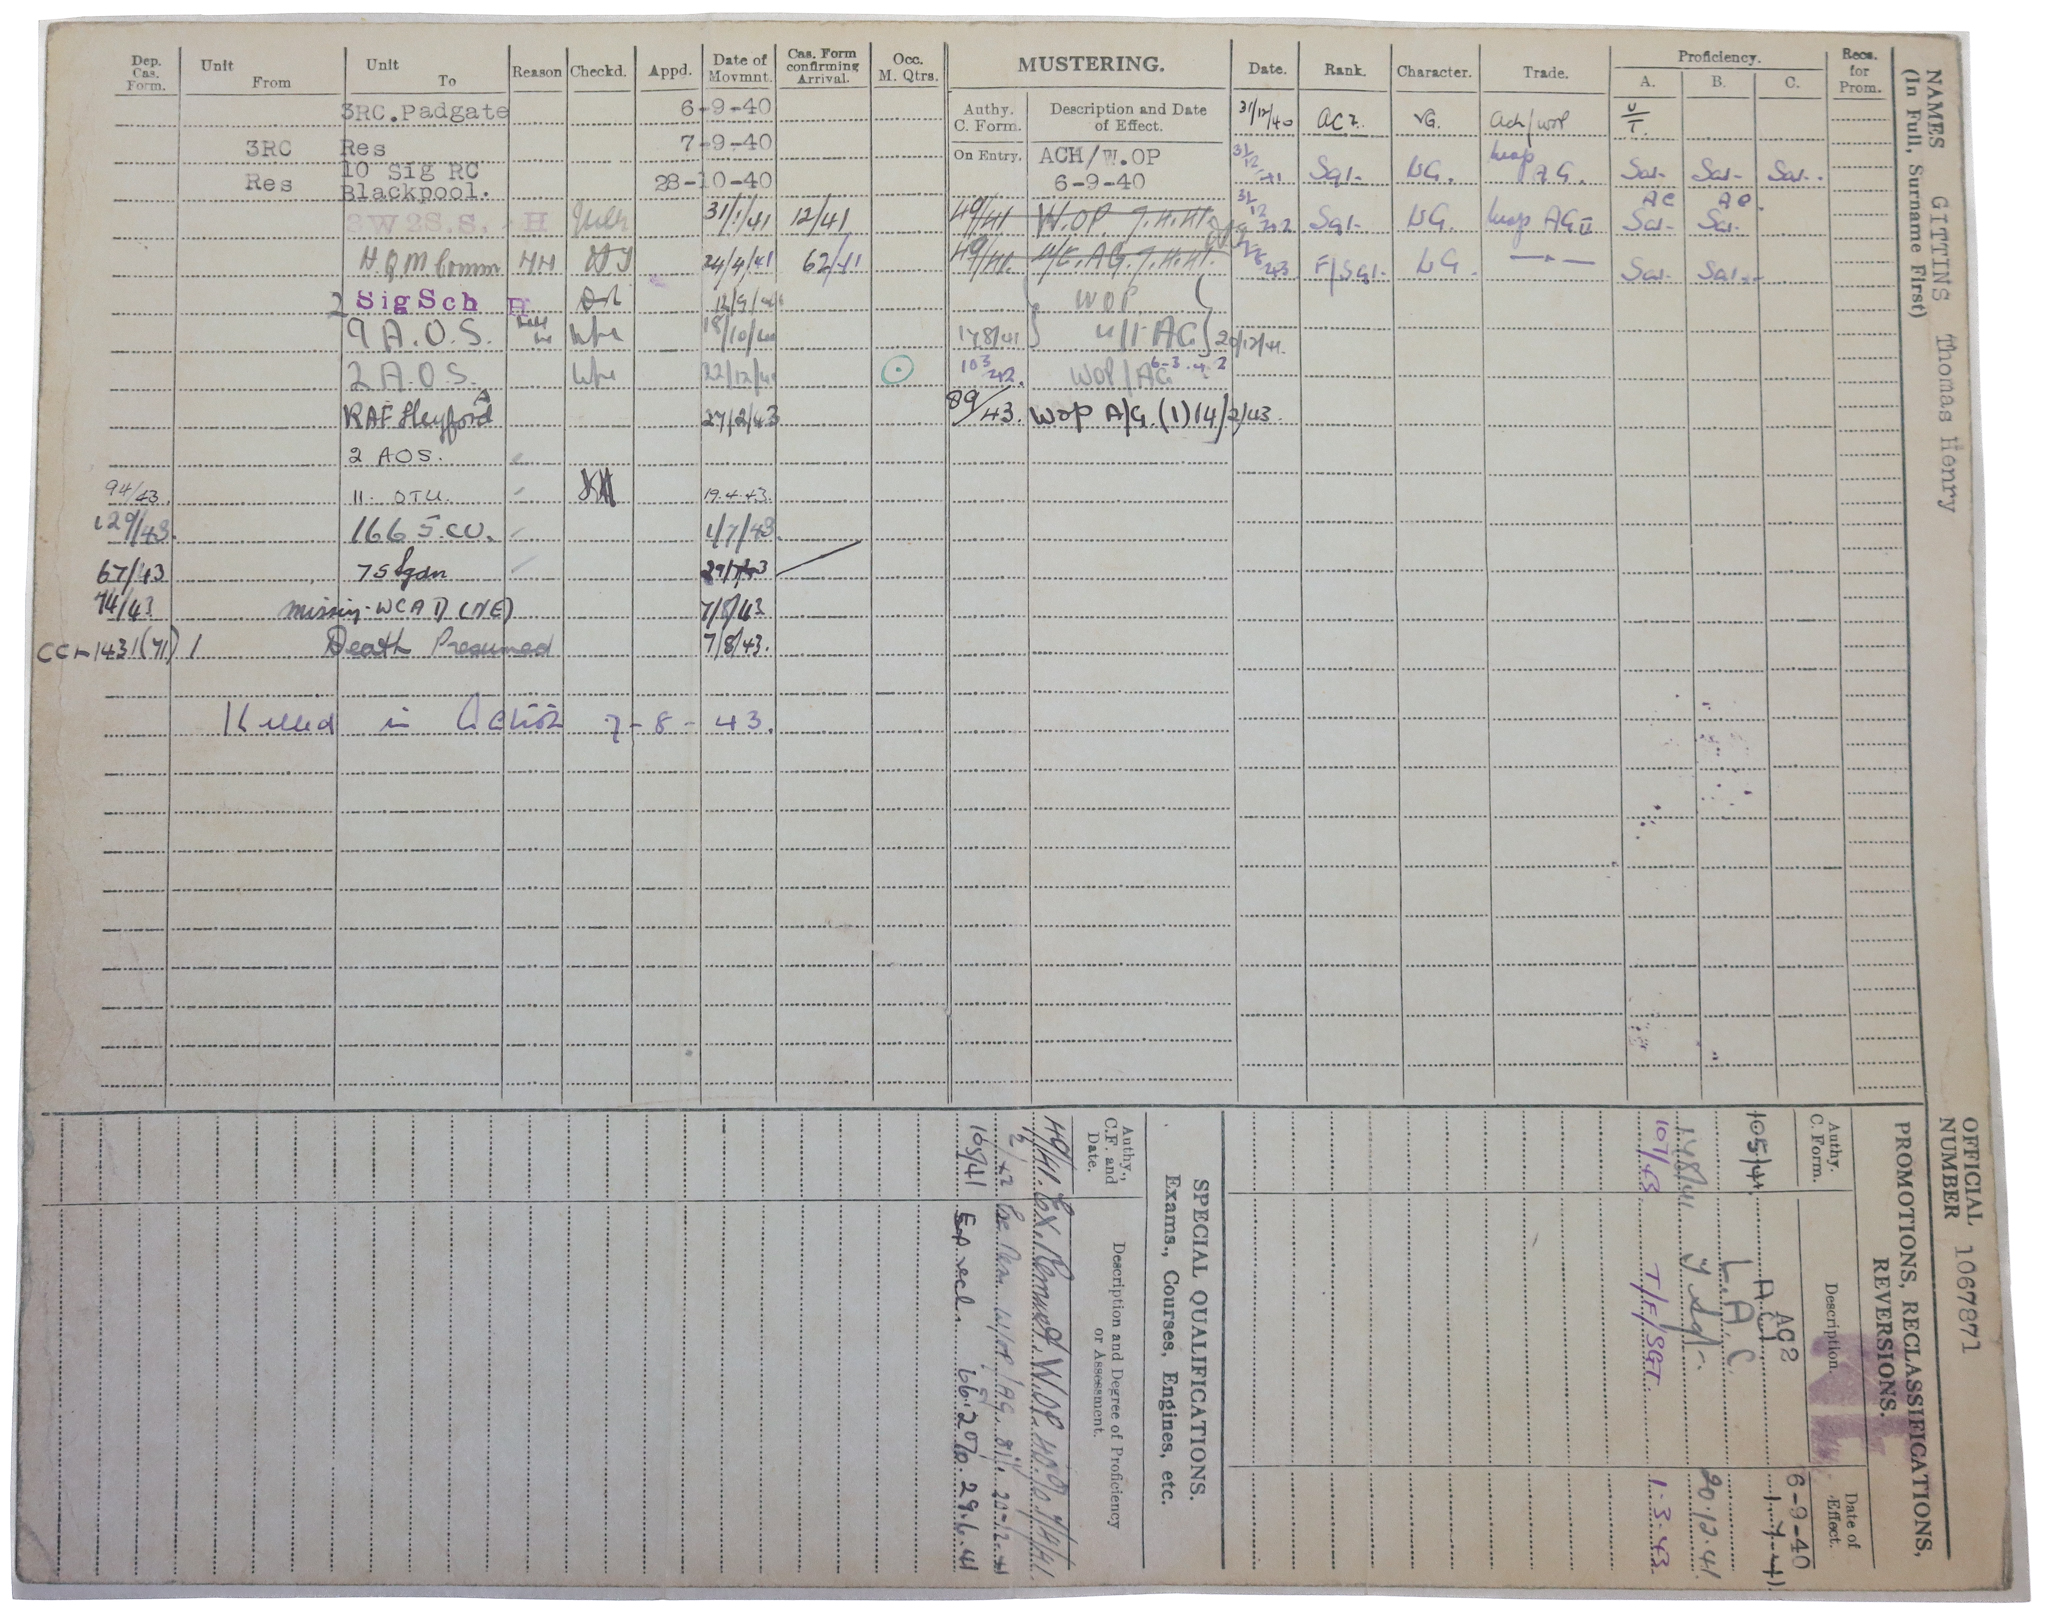 NAMES GITTINS Thomas Henry
(In Full, Surname First)
OFFICIAL NUMBER 1067871
Dep. Cas. Form. Unit From Unit To Reason Checkd. Appd. Date of Movmnt. Cas. Form confirming Arrival. Occ. M. Qtrs.
3RC.Padgate 6-9-40
3RC Res 7-9-40
Res 10 Sig RC Blackpool. 28-10-40
3W2S.S. H 31/1/41 12/41
H.Q M Comm 24/4/41 62/41
2 Sig Sch H 12/9/41
9 A.O.S. 18/10/41
2 A.O.S. 22/12/41
RAF Heyford 27/2/43
2 AOS.
94/43. 11. OTU. 19.4.43.
129/43. 1/7/43.
67/43 7 Sqdn 29/7/43
74/43 missing 7/8/43
Death Presumed 7/8/43.
Killed in Action 7-8-43.
MUSTERING.
Authy. C. Form. Description and Date of Effect.
On Entry. ACH/W.OP
6-9-40
49/41 W.OP.
49/41. U/T. AG.
WOP
178/41 u/t AG 20/12/41.
103/42. WOP/AG 6-3-42
89/43. WOP A/G. (1) 14/2/43.
Date. Rank. Character. Trade. Proficiency. Recs. for Prom.
A. B. C.
31/12/40 AC2. VG. Ach/WOP U/T.
31/12/41 Sgt. VG. Wop A.G. Sat. Sat. Sat.
31/12/42 Sgt. VG. Wop AG II Sat. Sat.
F/Sgt. VG. Sat. Sat.
PROMOTIONS, RECLASSIFICATIONS, REVERSIONS.
Authy. C. Form. Description. Date of Effect.
AC2 6-9-40
105/41. A.C.1 1-7-41
L.A.C.
148/41 T Sgt. 20.12.41
107/43 T/F/SGT. 1.3.43
SPECIAL QUALIFICATIONS.
Exams., Courses, Engines, etc.
Authy., C.F. and Date. Description and Degree of Proficiency or Assessment.
49/41. Ex. Remust. W.OP.
20-12-41
105/41 66.2%. 29.6.41